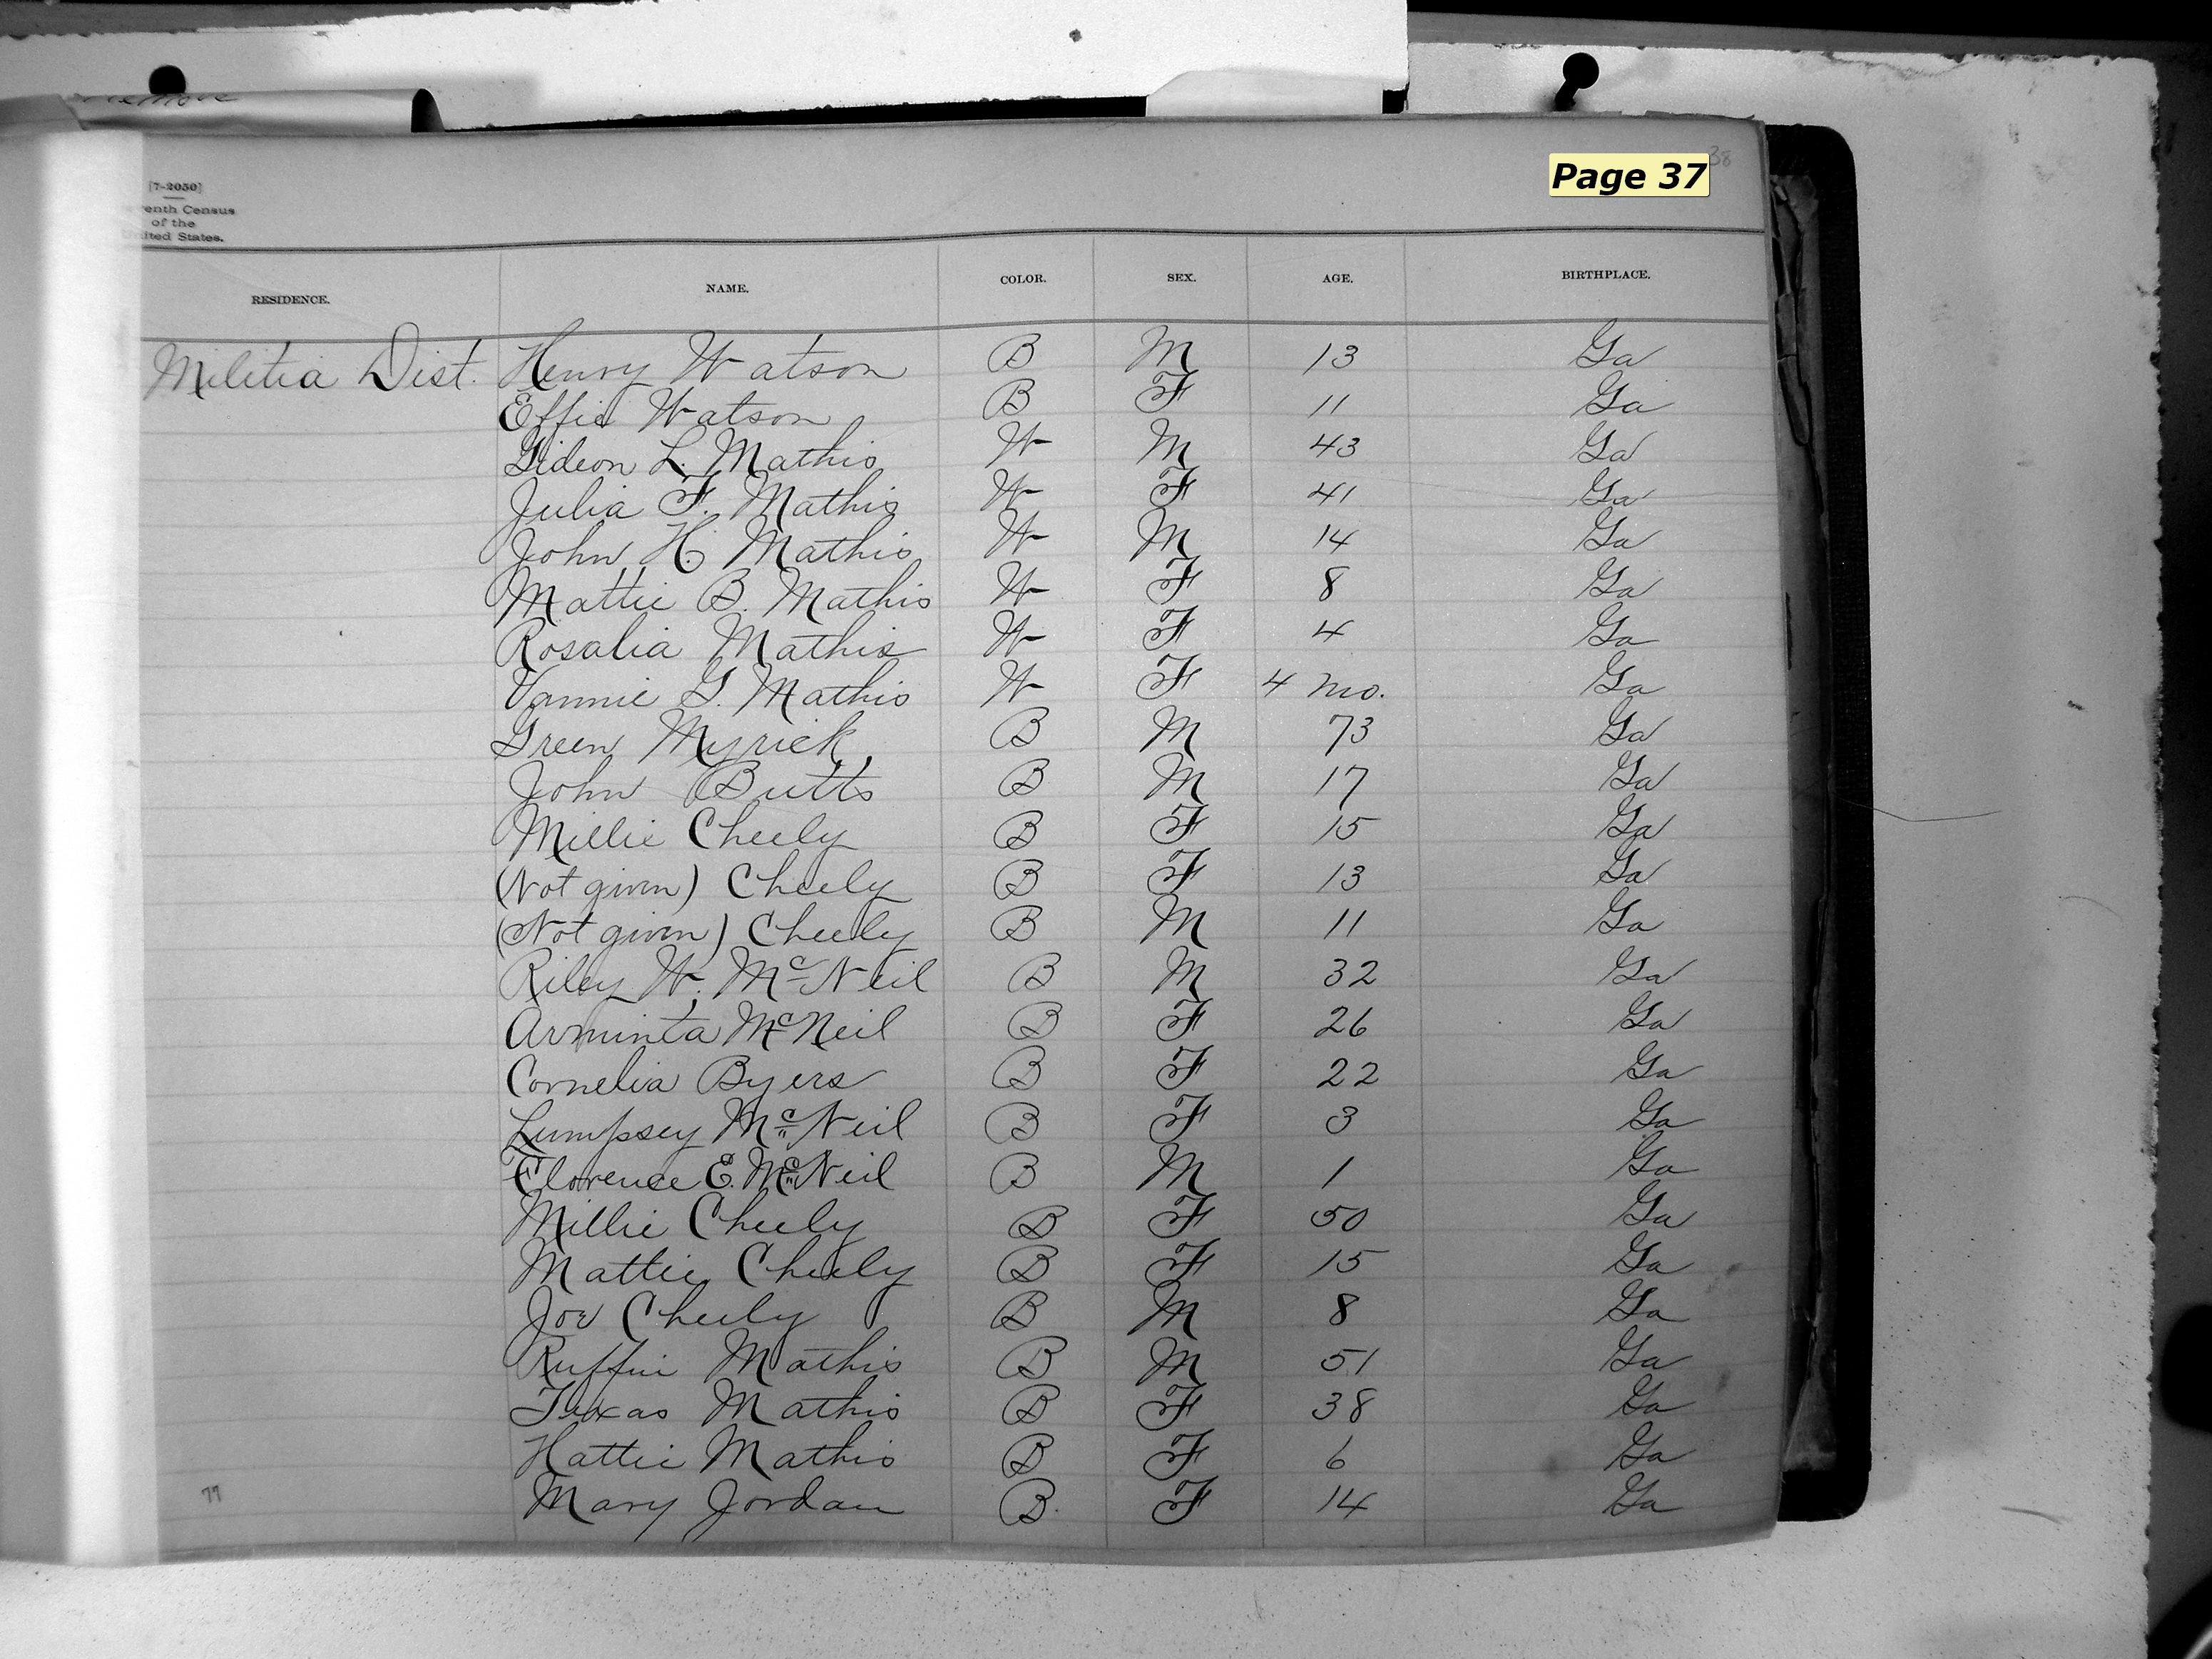 Page 37
38
[7-2050]
enth Census
of the
ited States.
RESIDENCE. NAME. COLOR. SEX. AGE. BIRTHPLACE.
Militia Dist. Henry Watson B M 13 Ga
Effie Watson B F 11 Ga
Gideon L. Mathis W M 43 Ga
Julia F. Mathis W F 41 Ga
John H. Mathis W M 14 Ga
Mattie B. Mathis W F 8 Ga
Rosalia Mathis W F 4 Ga
Vannie G. Mathis W F 4 mo. Ga
Green Myrick B M 73 Ga
John Butts B M 17 Ga
Millie Cheely B F 15 Ga
(Not given) Cheely B F 13 Ga
(Not given) Cheely B M 11 Ga
Riley W. McNeil B M 32 Ga
Arminta McNeil B F 26 Ga
Cornelia Byers B F 22 Ga
Lumpsey McNeil B F 3 Ga
Florence E. McNeil B M 1 Ga
Millie Cheely B F 50 Ga
Mattie Cheely B F 15 Ga
Joe Cheely B M 8 Ga
Ruffin Mathis B M 51 Ga
Texas Mathis B F 38 Ga
Hattie Mathis B F 6 Ga
77 Mary Jordan B F 14 Ga